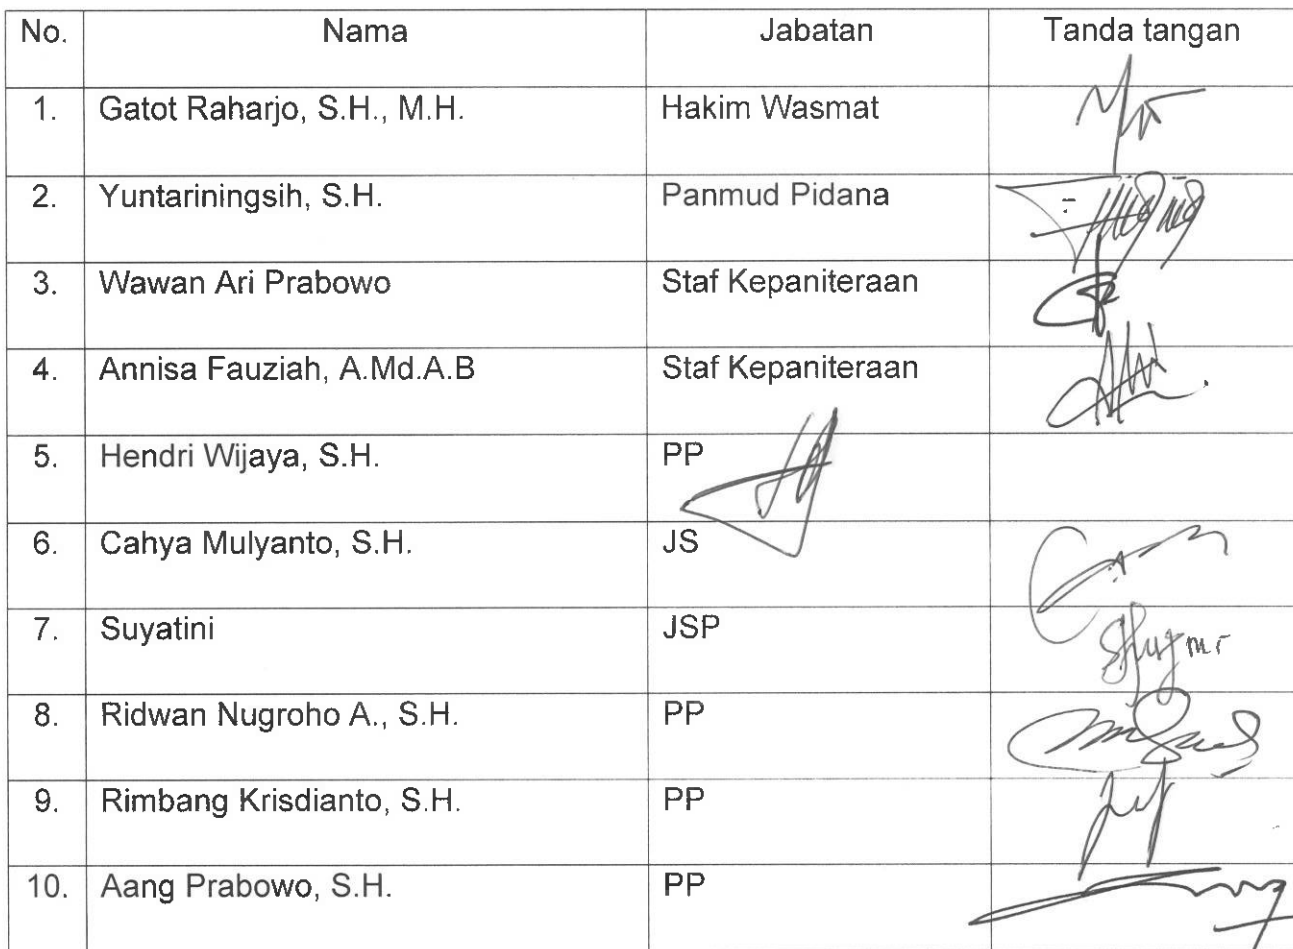 No. Nama Jabatan Tanda tangan
1. Gatot Raharjo, S.H., M.H. Hakim Wasmat
2. Yuntariningsih, S.H. Panmud Pidana
3. Wawan Ari Prabowo Staf Kepaniteraan
4. Annisa Fauziah, A.Md.A.B Staf Kepaniteraan
5. Hendri Wijaya, S.H. PP
6. Cahya Mulyanto, S.H. JS
7. Suyatini JSP
8. Ridwan Nugroho A., S.H. PP
9. Rimbang Krisdianto, S.H. PP
10. Aang Prabowo, S.H. PP